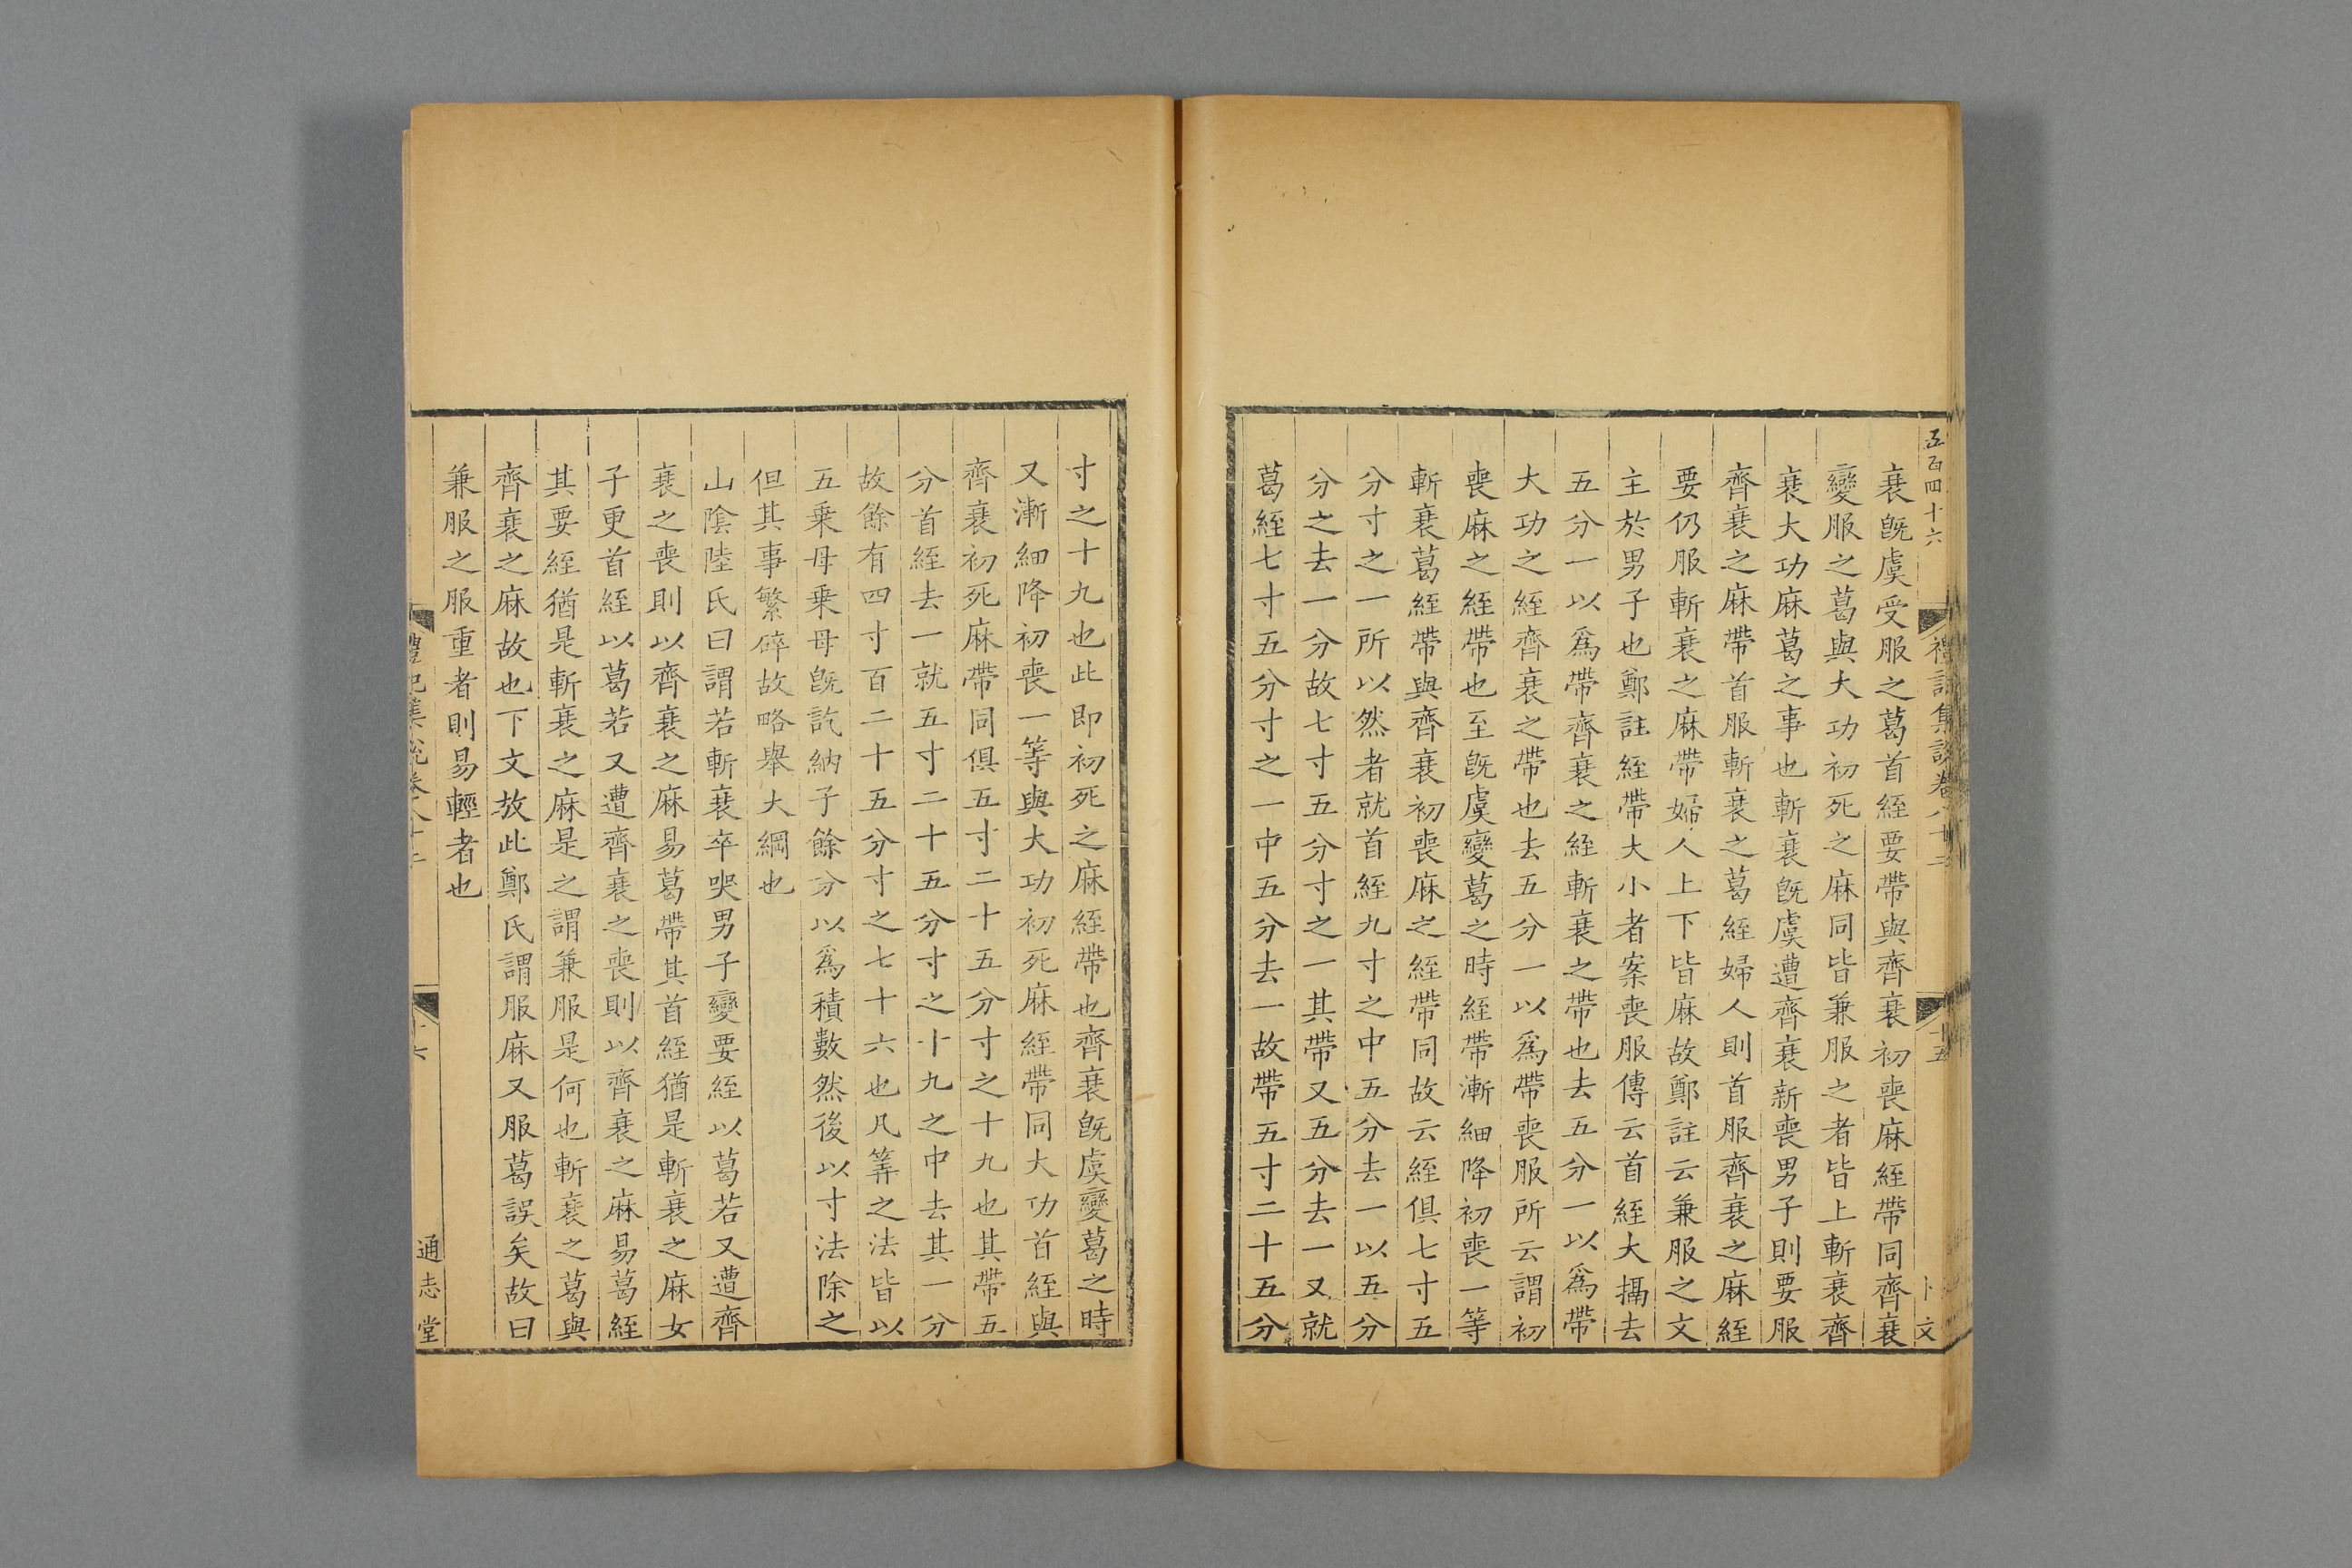 五百四十六
禮記集說卷八十二
十五
卜文
衰旣虞受服之葛首絰要帶與齊衰初喪麻絰帶同齊衰
變服之葛與大功初死之麻同皆兼服之者皆上斬衰齊
衰大功麻葛之事也斬衰旣虞遭齊衰新喪男子則要服
齊衰之麻帶首服斬衰之葛絰婦人則首服齊衰之麻絰
要仍服斬衰之麻帶婦人上下皆麻故鄭註云兼服之文
主於男子也鄭註絰帶大小者案喪服傳云首絰大搹去
五分一以爲帶齊衰之絰斬衰之帶也去五分一以爲帶
大功之絰齊衰之帶也去五分一以爲帶喪服所云謂初
喪麻之絰帶也至旣虞變葛之時絰帶漸細降初喪一等
斬衰葛絰帶與齊衰初喪麻之絰帶同故云絰俱七寸五
分寸之一所以然者就首絰九寸之中五分去一以五分
分之去一分故七寸五分寸之一其帶又五分去一又就
葛絰七寸五分寸之一中五分去一故帶五寸二十五分
寸之十九也此即初死之麻絰帶也齊衰旣虞變葛之時
又漸細降初喪一等與大功初死麻絰帶同大功首絰與
齊衰初死麻帶同俱五寸二十五分寸之十九也其帶五
分首絰去一就五寸二十五分寸之十九之中去其一分
故餘有四寸百二十五分寸之七十六也凡筭之法皆以
五乗母乗母旣訖納子餘分以爲積數然後以寸法除之
但其事繁碎故略舉大綱也
山陰陸氏曰謂若斬衰卒哭男子變要絰以葛若又遭齊
衰之喪則以齊衰之麻易葛帶其首絰猶是斬衰之麻女
子更首絰以葛若又遭齊衰之喪則以齊衰之麻易葛絰
其要絰猶是斬衰之麻是之謂兼服是何也斬衰之葛與
齊衰之麻故也下文放此鄭氏謂服麻又服葛誤矣故曰
兼服之服重者則易輕者也
禮記集說卷八十二
十六
通志堂